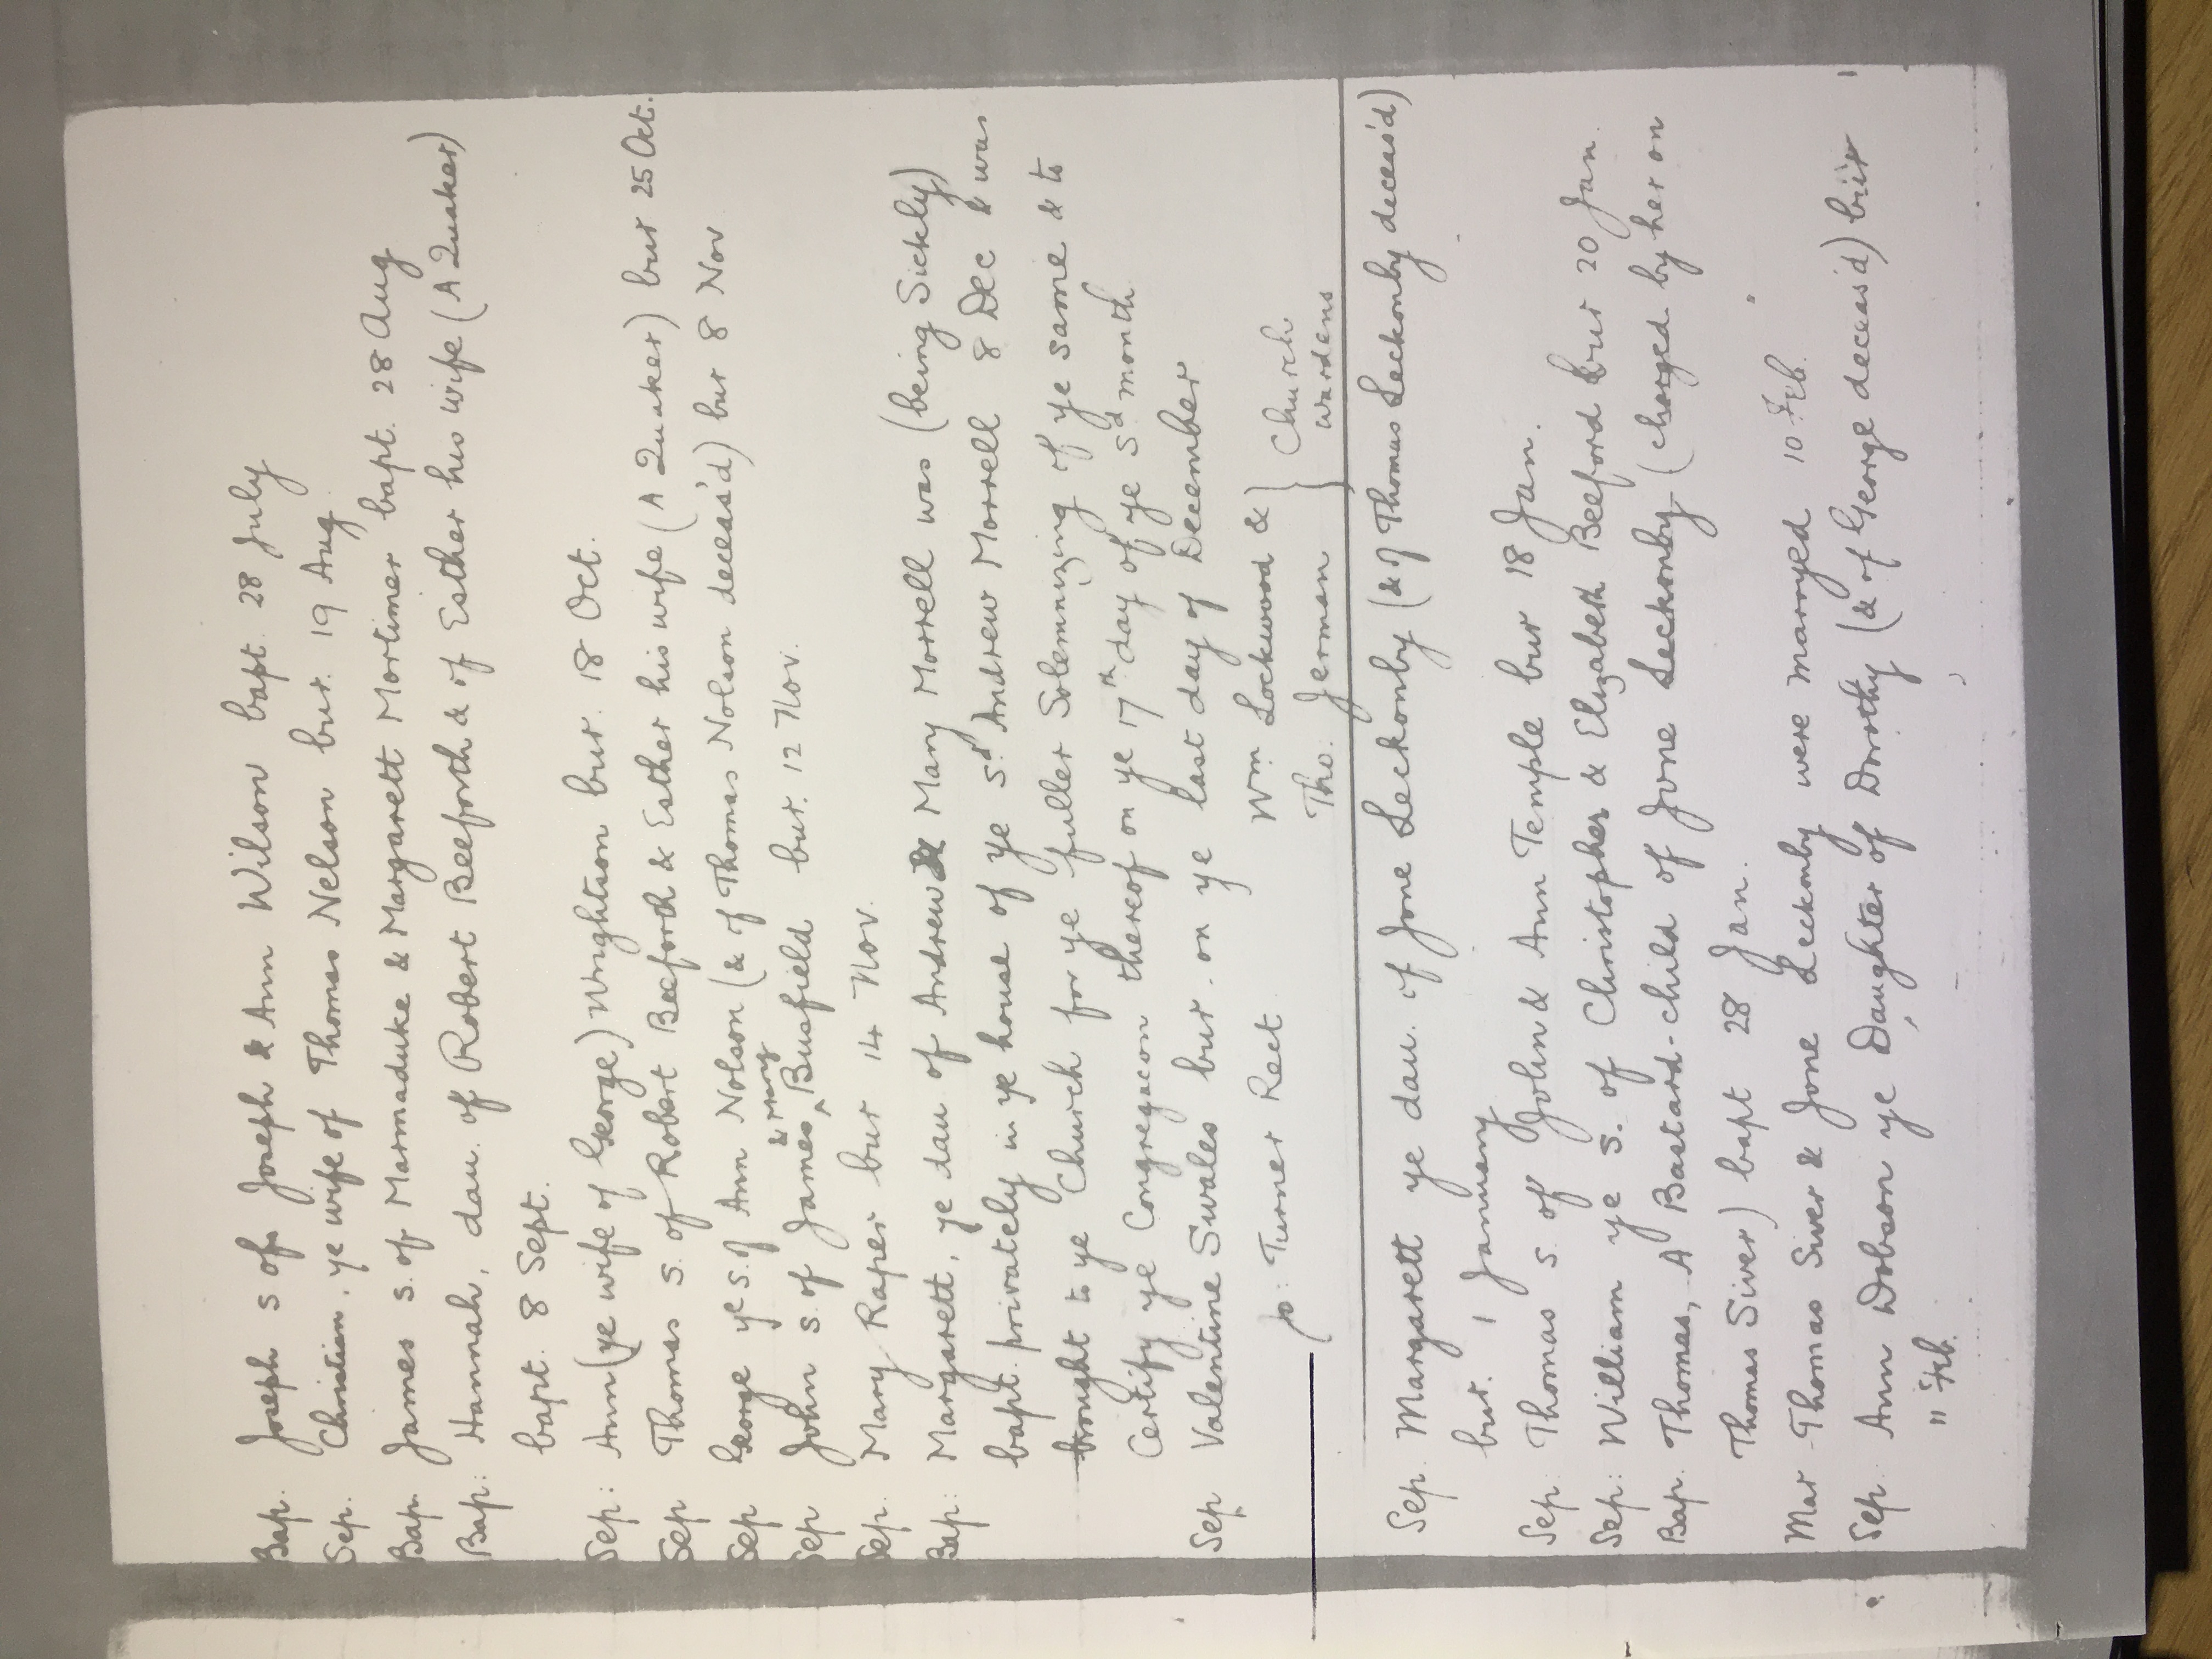 Bap. Joseph s of Joseph & Ann Wilson bapt. 28 July
Sep. Christian, ye wife of Thomas Nelson bur. 19 Aug.
Bap. James s. of Marmaduke & Margarett Mortimer bapt. 28 Aug
Bap: Hannah, dau. of Robert Beeforth & of Esther his wife (A Quaker)
bapt. 8 Sept.
Sep: Ann (ye wife of George) Wrightson bur. 18 Oct.
Sep Thomas s. of Robert Beeforth & Esther his wife (A Quaker) bur 25 Oct.
Sep George ye s. of Ann Nolson (& of Thomas Nolson deceas'd) bur 8 Nov
Sep John s. of James & Mary Busfield bur. 12 Nov.
Sep. Mary Raper bur 14 Nov.
Bap: Margarett, ye dau of Andrew & Mary Morrell was (being Sickly)
bapt. privately in ye house of ye sd Andrew Morrell 8 Dec & was
brought to ye Church for ye fuller Solemnizing of ye same & to
Certify ye Congregacon thereof on ye 17th day of ye sd month
Sep Valentine Swales bur. on ye last day of December
Jo: Turner Rect. Wm. Lockwood & } Church
Tho: Jerman } wardens
Sep. Margarett ye dau. of Jone Leckonby (& of Thomas Leckonby deceas'd)
bur. 1 January
Sep: Thomas s of John & Ann Temple bur 18 Jan.
Sep: William ye s. of Christopher & Elizabeth Beeford bur 20 Jan.
Bap. Thomas, A Bastard-child of Jone Leckonby (charged by her on
Thomas Siver) bapt 28 Jan.
Mar Thomas Siver & Jone Leckonby were marryed 10 Feb.
Sep. Ann Dobson ye Daughter of Dorothy (& of George deceas'd) bur
11 Feb.